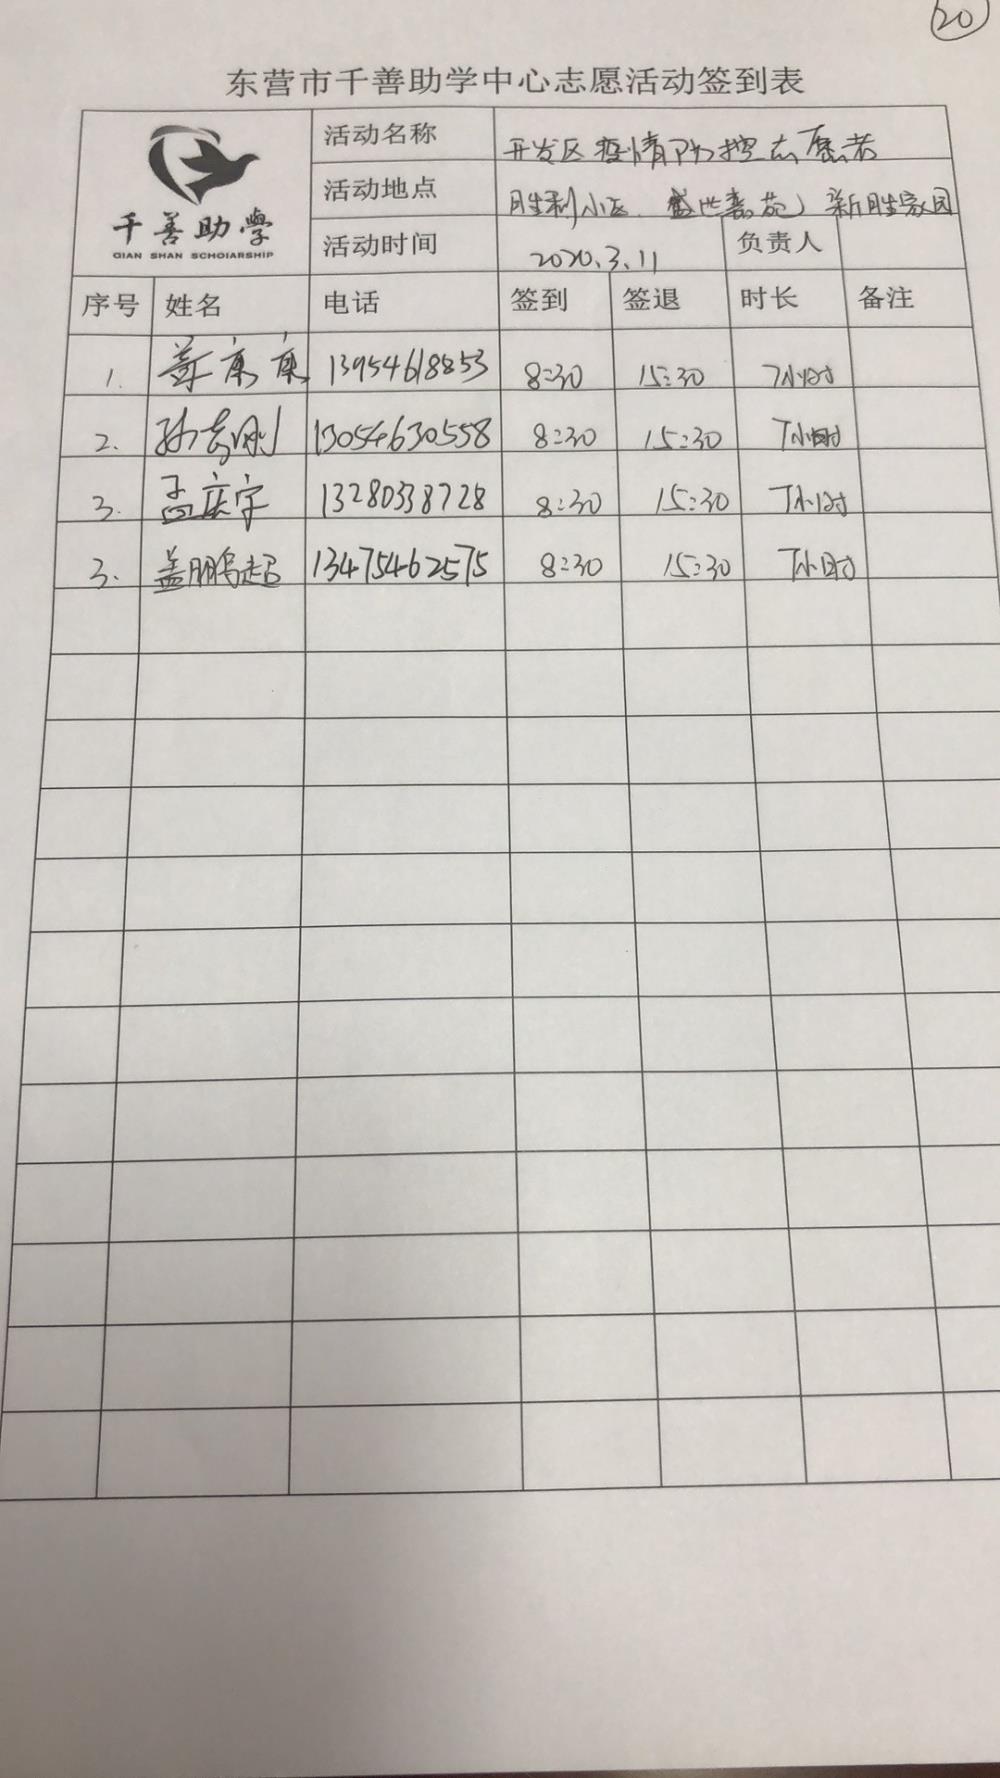 20
东营市千善助学中心志愿活动签到表
千善助學
QIAN SHAN SCHOIARSHIP
活动名称 开发区疫情防控志愿者
活动地点 胜利小区、盛世嘉苑、新胜家园
活动时间 2020.3.11 负责人
序号 姓名 电话 签到 签退 时长 备注
1. 康康 13954618853 8:30 15:30 7小时
2. 孙志刚 13054630558 8:30 15:30 7小时
3. 孟庆宇 13280338728 8:30 15:30 7小时
3. 盖鹏超 13475462575 8:30 15:30 7小时